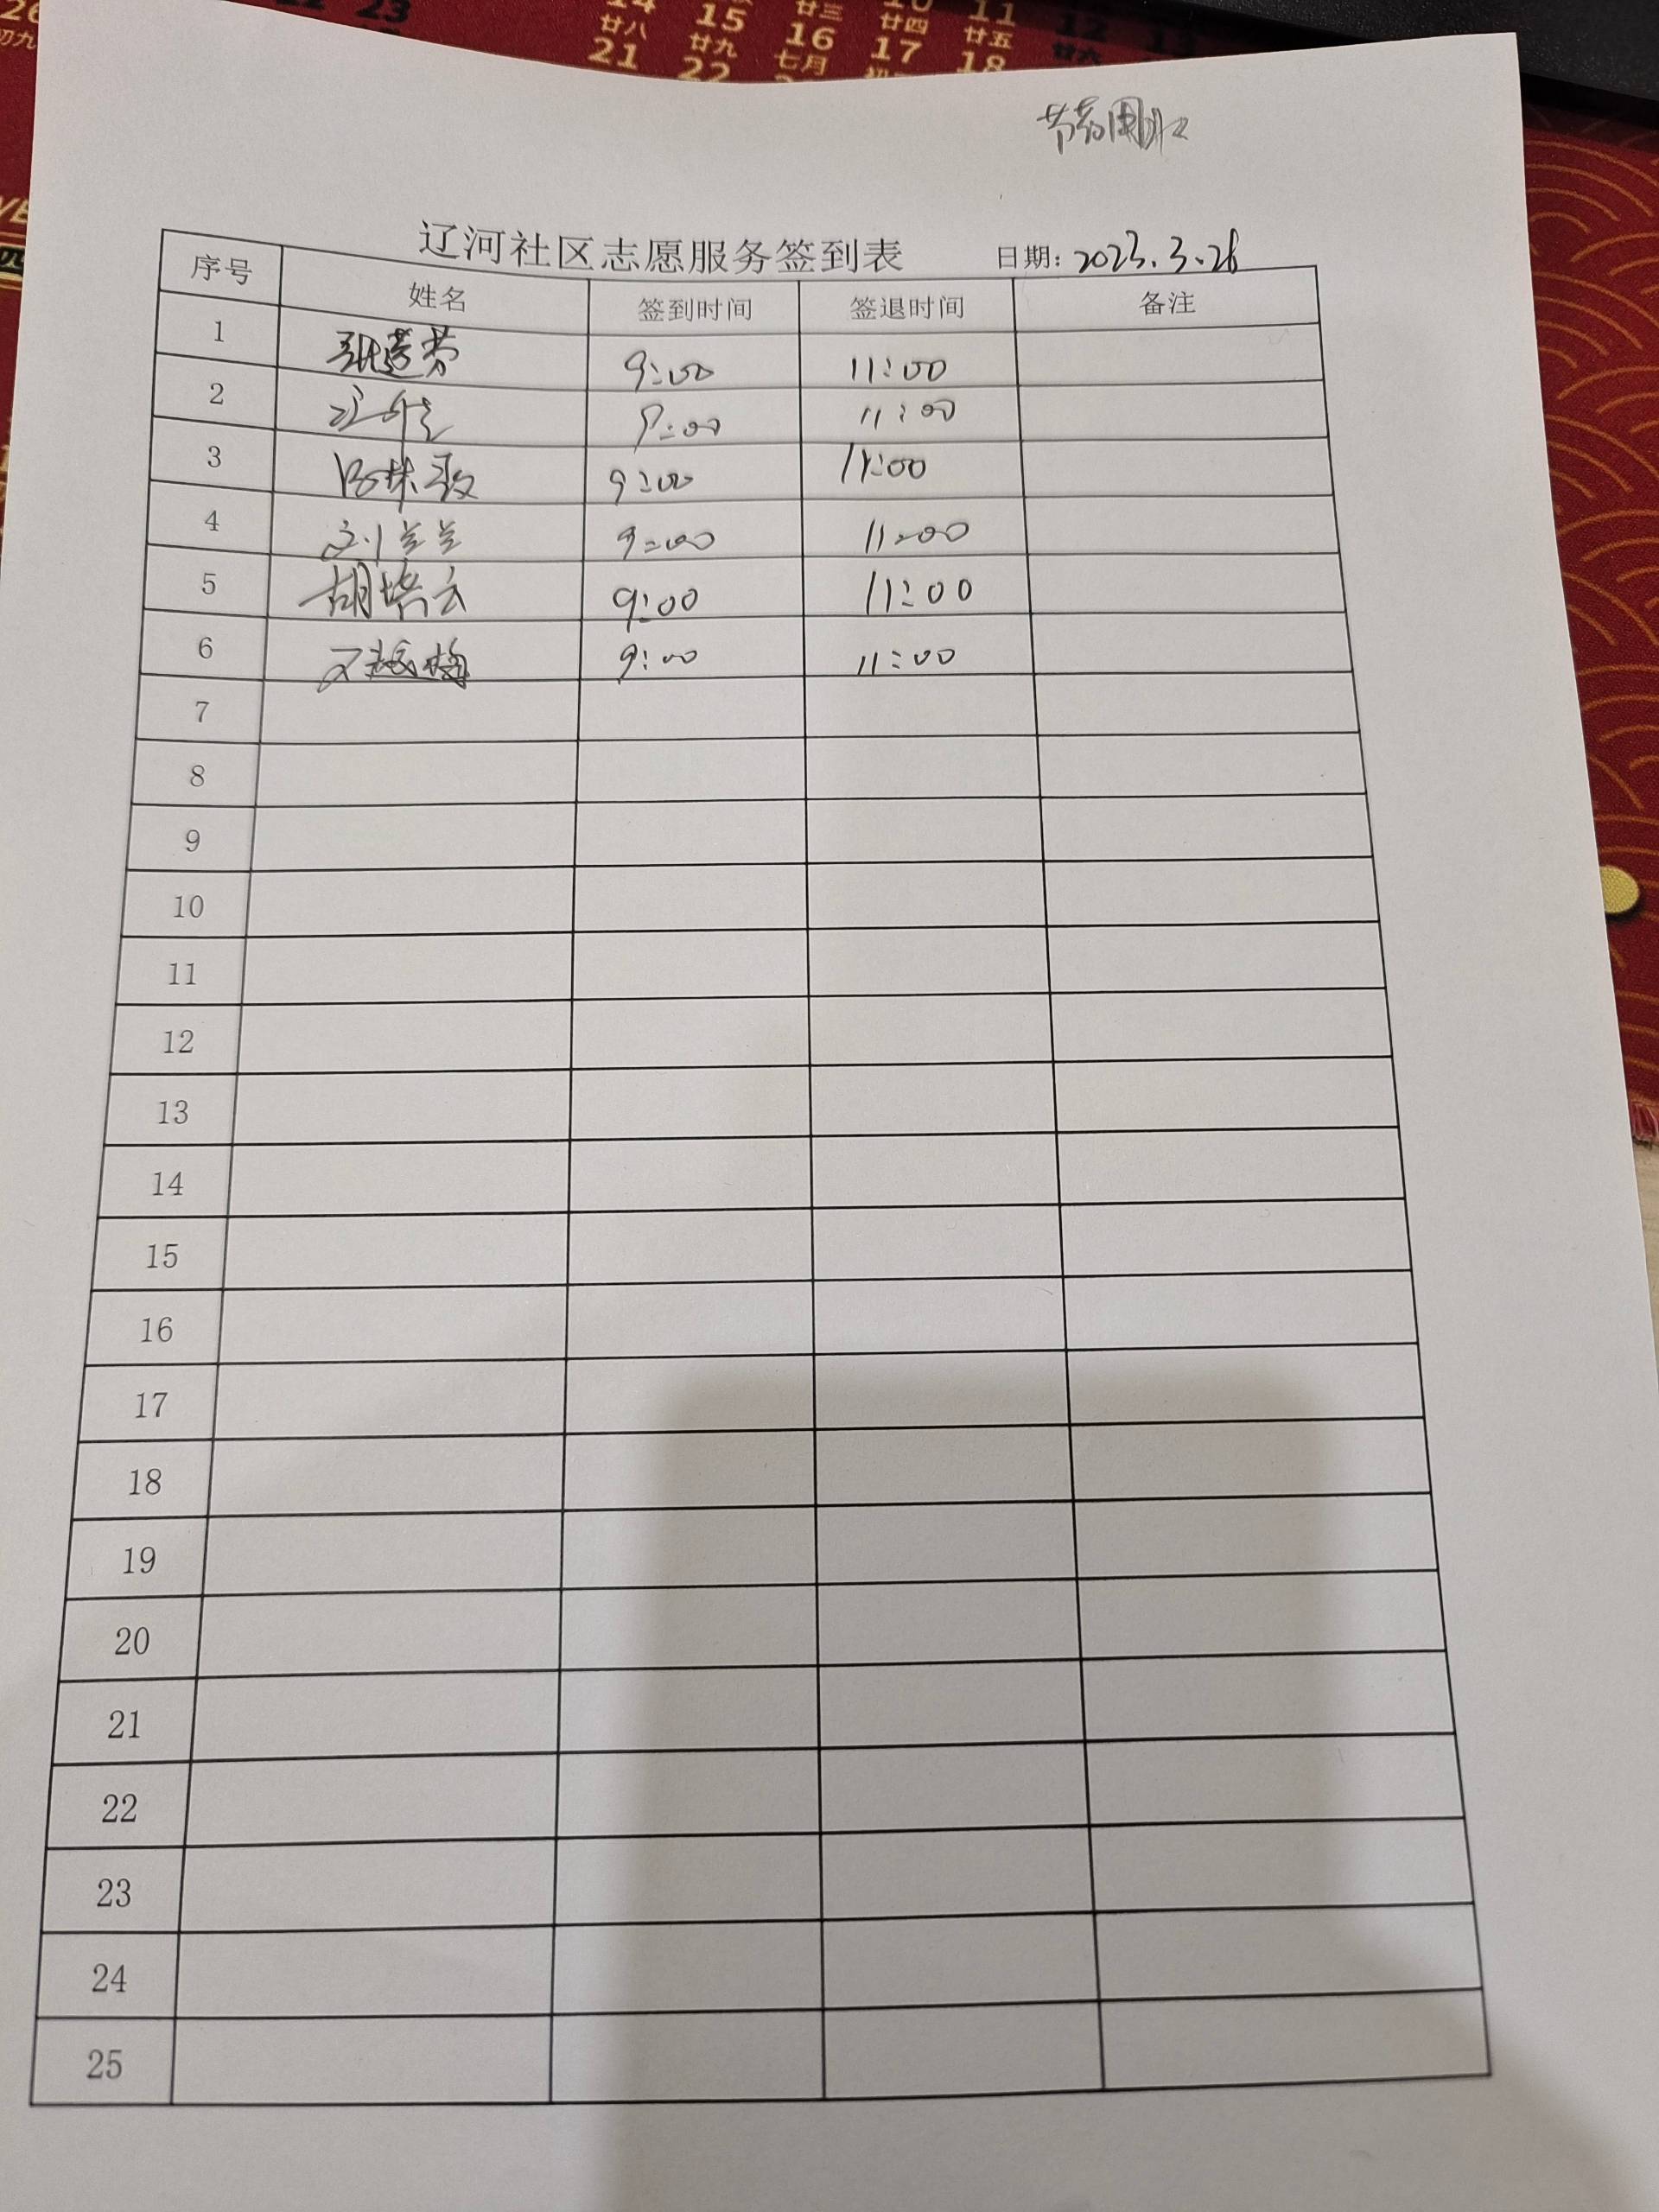 23
15 廿三 廿四 11
廿八 廿九 16 17 廿五
21 22 七月 18
节约用水
辽河社区志愿服务签到表 日期: 2023.3.28
序号 姓名 签到时间 签退时间 备注
1 9:00 11:00
2 9:00 11:00
3 9:00 11:00
4 刘兰兰 9:00 11:00
5 胡培云 9:00 11:00
6 9:00 11:00
7
8
9
10
11
12
13
14
15
16
17
18
19
20
21
22
23
24
25